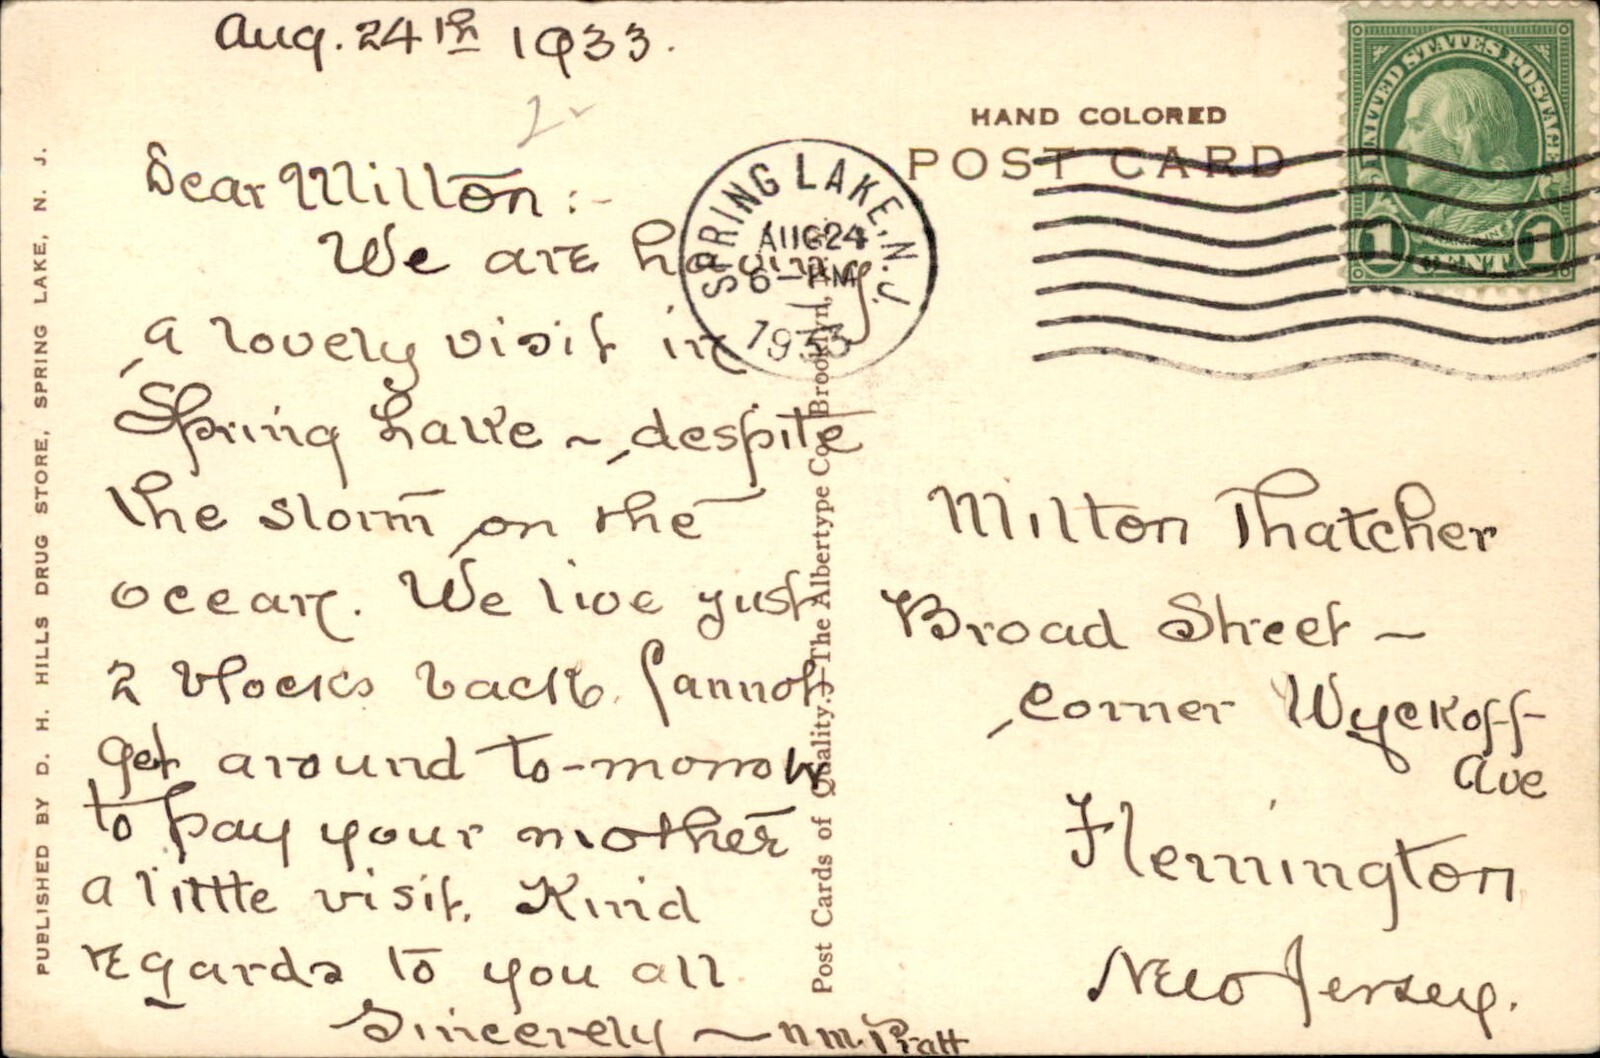 Aug. 24th 1933.
Dear Milton :-
We are having
a lovely visit in
Spring Lake ~ despite
the storm on the
ocean. We live just
2 blocks back. Cannot
get around to-morrow
to pay your mother
a little visit. Kind
regards to you all
Sincerely ~ N M. Pratt
PUBLISHED BY D. H. HILLS DRUG STORE, SPRING LAKE, N. J.
Post Cards of Quality.—The Albertype Co., Brooklyn,
HAND COLORED
POST CARD
SPRING LAKE, N.J.
AUG 24
6 - PM
1933
UNITED STATES POSTAGE
FRANKLIN
1 CENT 1
Milton Thatcher
Broad Street ~
corner Wyckoff
Ave
Flemington
New Jersey.